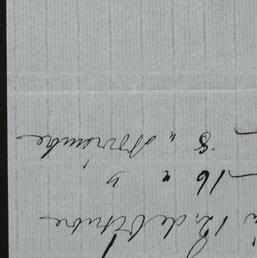 12 de Octubre
16 " "
8 " Noviembre